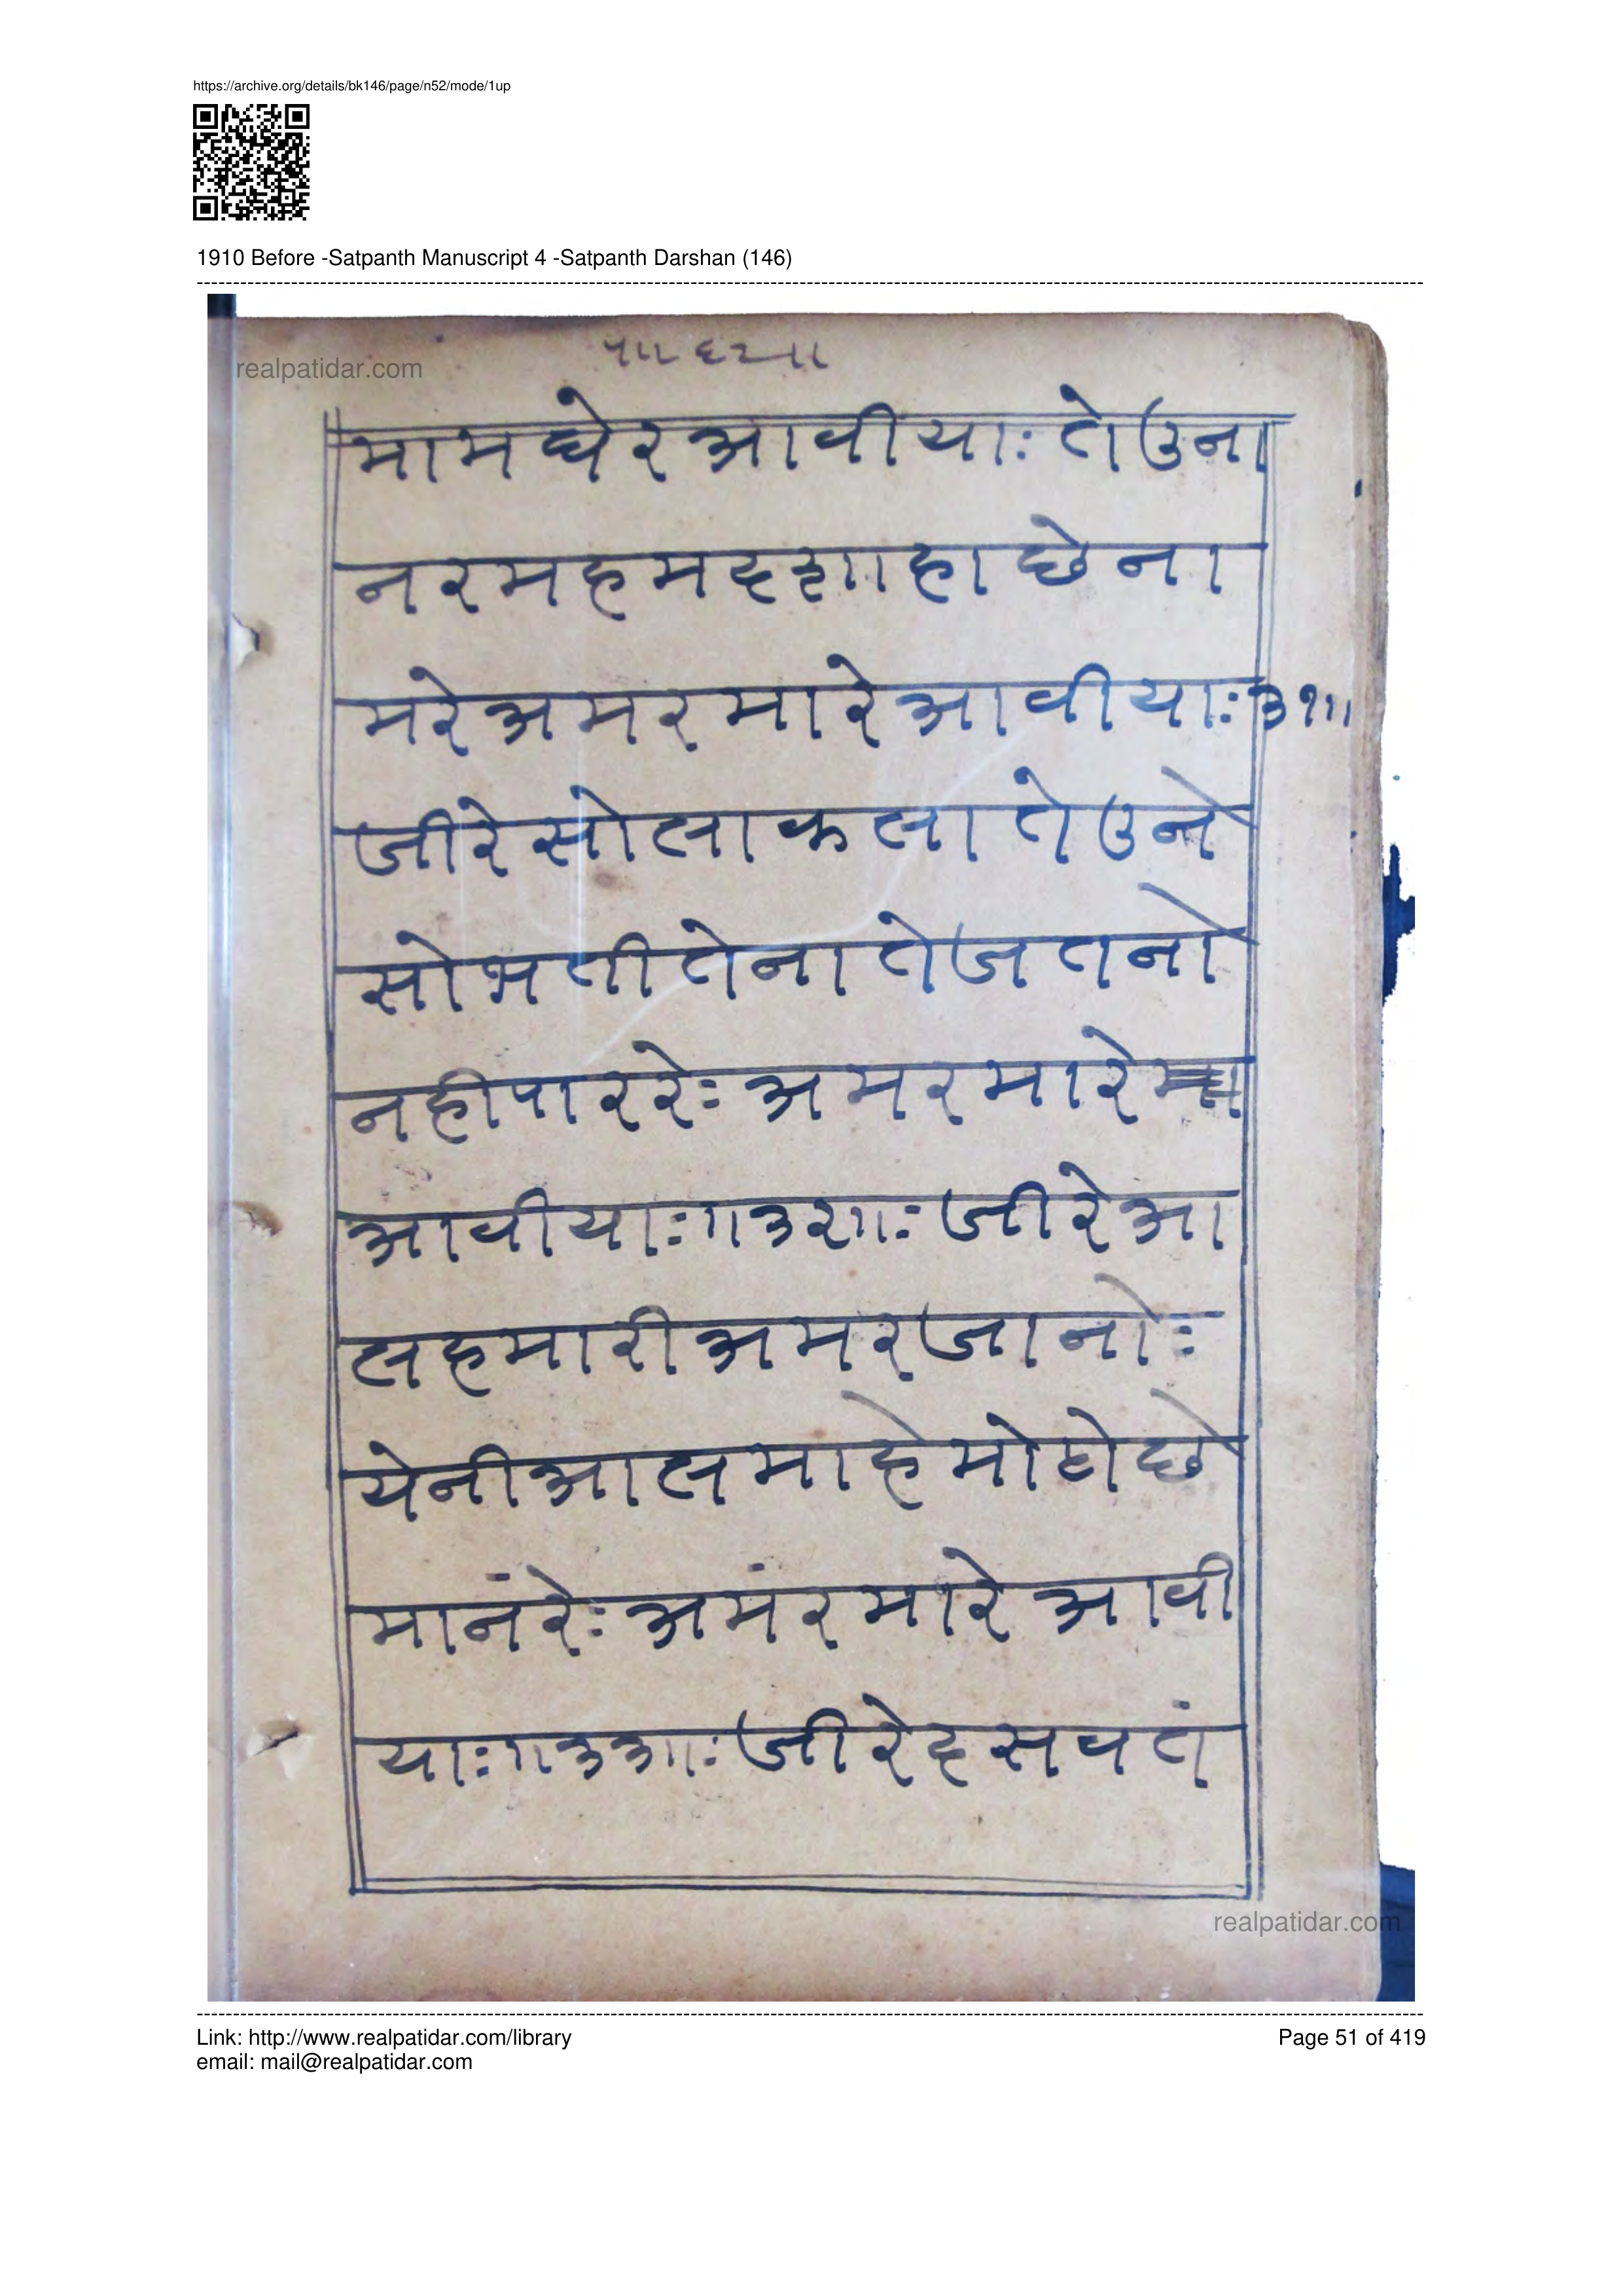 https://archive.org/details/bk146/page/n52/mode/1up
1910 Before -Satpanth Manuscript 4 -Satpanth Darshan (146)
realpatidar.com
पा। ६२॥
मामघेरआवीयाः तेउना
नरमहमदशाहा छेना
मरेअमरमारेआवीयाः३१॥
जीरेसोलाकलातेउने
सोभतीतेनातेजतनो
नहीपाररेः अमरमारे
आवीयाः॥३२॥ः जीरेआ
लहमारीअमरजानोः
येनीआलमाहेमोटोछे
मानंरेः अमंरमारे आवी
याः॥३३॥ः जीरेदसवतं
realpatidar.com
Link: http://www.realpatidar.com/library
Page 51 of 419
email: mail@realpatidar.com